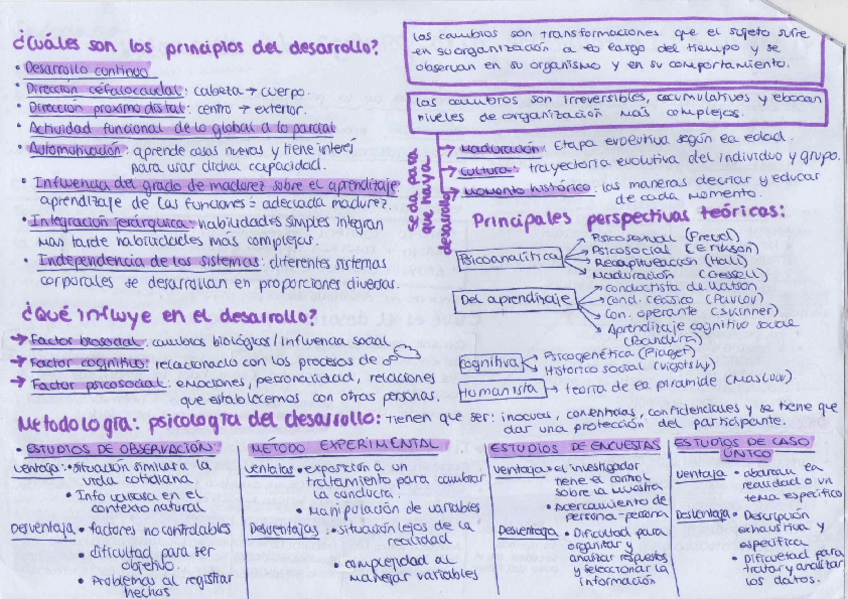 ¿Cuáles son los principios del desarrollo?
• Desarrollo continuo
• Dirección céfalocaudal: cabeza → cuerpo.
• Dirección proximo distal: centro → exterior.
• Actividad funcional de lo global a lo parcial
• Automotivación: aprende cosas nuevas y tiene interés
para usar dicha capacidad.
• Influencia del grado de madurez sobre el aprendizaje:
aprendizaje de las funciones = adecuada madurez.
• Integración jerárquica: habilidades simples integran
más tarde habilidades más complejas.
• Independencia de los sistemas: diferentes sistemas
corporales se desarrollan en proporciones diversas.
Los cambios son transformaciones que el sujeto sufre
en su organización a lo largo del tiempo y se
observan en su organismo y en su comportamiento.
Los cambios son irreversibles, acumulativos y elaboran
niveles de organización más complejos.
Se da para
que haya
desarrollo
→ Maduración: Etapa evolutiva según la edad.
→ Cultura: trayectoria evolutiva del individuo y grupo.
→ Momento histórico: las maneras de criar y educar
de cada momento.
Principales perspectivas teóricas:
Psicoanalítica
Psicosexual (Freud)
Psicosocial (Erikson)
Recapitulación (Hall)
Maduración (Gessell)
Del aprendizaje
Conductista de Watson
Cond. Clásico (Pavlov)
Con. operante (Skinner)
Aprendizaje cognitivo social
(Bandura)
Cognitiva
Psicogenética (Piaget)
Histórico social (Vigotsky)
Humanista → teoría de la pirámide (Maslow)
¿Qué influye en el desarrollo?
→ Factor biosocial: cambios biológicos / influencia social
→ Factor cognitivo: relacionado con los procesos de
→ Factor psicosocial: emociones, personalidad, relaciones
que establecemos con otras personas.
Metodología: psicología del desarrollo: tienen que ser: inocuas, consentidas, confidenciales y se tiene que
dar una protección del participante.
• ESTUDIOS DE OBSERVACIÓN:
Ventaja: • Situación similar a la
vida cotidiana
• Info valiosa en el
contexto natural
Desventaja • factores no controlables
• Dificultad para ser
objetivo.
• Problemas al registrar
hechos
MÉTODO EXPERIMENTAL
Ventajas • exposición a un
tratamiento para cambiar
la conducta.
• Manipulación de variables
Desventajas: • situación lejos de la
realidad
• complejidad al
manejar variables
ESTUDIOS DE ENCUESTAS
Ventaja: • el investigador
tiene el control
sobre la muestra
• Acercamiento de
persona-persona
Desventaja • Dificultad para
organizar y
analizar respuestas
y seleccionar la
información
ESTUDIOS DE CASO
ÚNICO
Ventaja • abarcan la
realidad o un
tema específico
Desventaja • Descripción
exhaustiva y
específica
• Dificultad para
tratar y analizar
los datos.